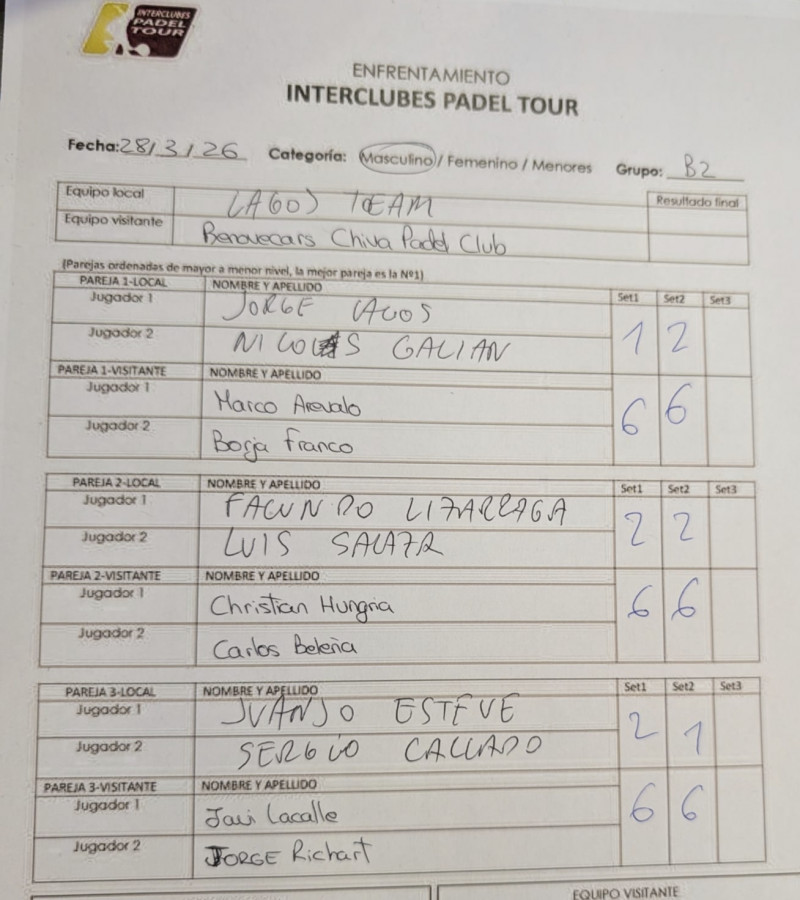 INTERCLUBES
PADEL
TOUR
ENFRENTAMIENTO
INTERCLUBES PADEL TOUR
Fecha: 28/3/26 Categoría: Masculino / Femenino / Menores Grupo: B2
Equipo local LAGOS TEAM Resultado final
Equipo visitante Benovecars Chiva Padel Club
(Parejas ordenadas de mayor a menor nivel, la mejor pareja es la Nº1)
PAREJA 1-LOCAL NOMBRE Y APELLIDO Set1 Set2 Set3
Jugador 1 JORGE LAGOS
Jugador 2 NICOLAS GALIAN 1 2
PAREJA 1-VISITANTE NOMBRE Y APELLIDO
Jugador 1 Marco Arevalo 6 6
Jugador 2 Borja Franco
PAREJA 2-LOCAL NOMBRE Y APELLIDO Set1 Set2 Set3
Jugador 1 FACUNDO LIZARRAGA
Jugador 2 LUIS SALAZAR 2 2
PAREJA 2-VISITANTE NOMBRE Y APELLIDO
Jugador 1 Christian Hungria 6 6
Jugador 2 Carlos Beleña
PAREJA 3-LOCAL NOMBRE Y APELLIDO Set1 Set2 Set3
Jugador 1 JUANJO ESTEVE
Jugador 2 SERGIO CALLADO 2 1
PAREJA 3-VISITANTE NOMBRE Y APELLIDO
Jugador 1 Javi Lacalle 6 6
Jugador 2 JORGE Richart
EQUIPO VISITANTE